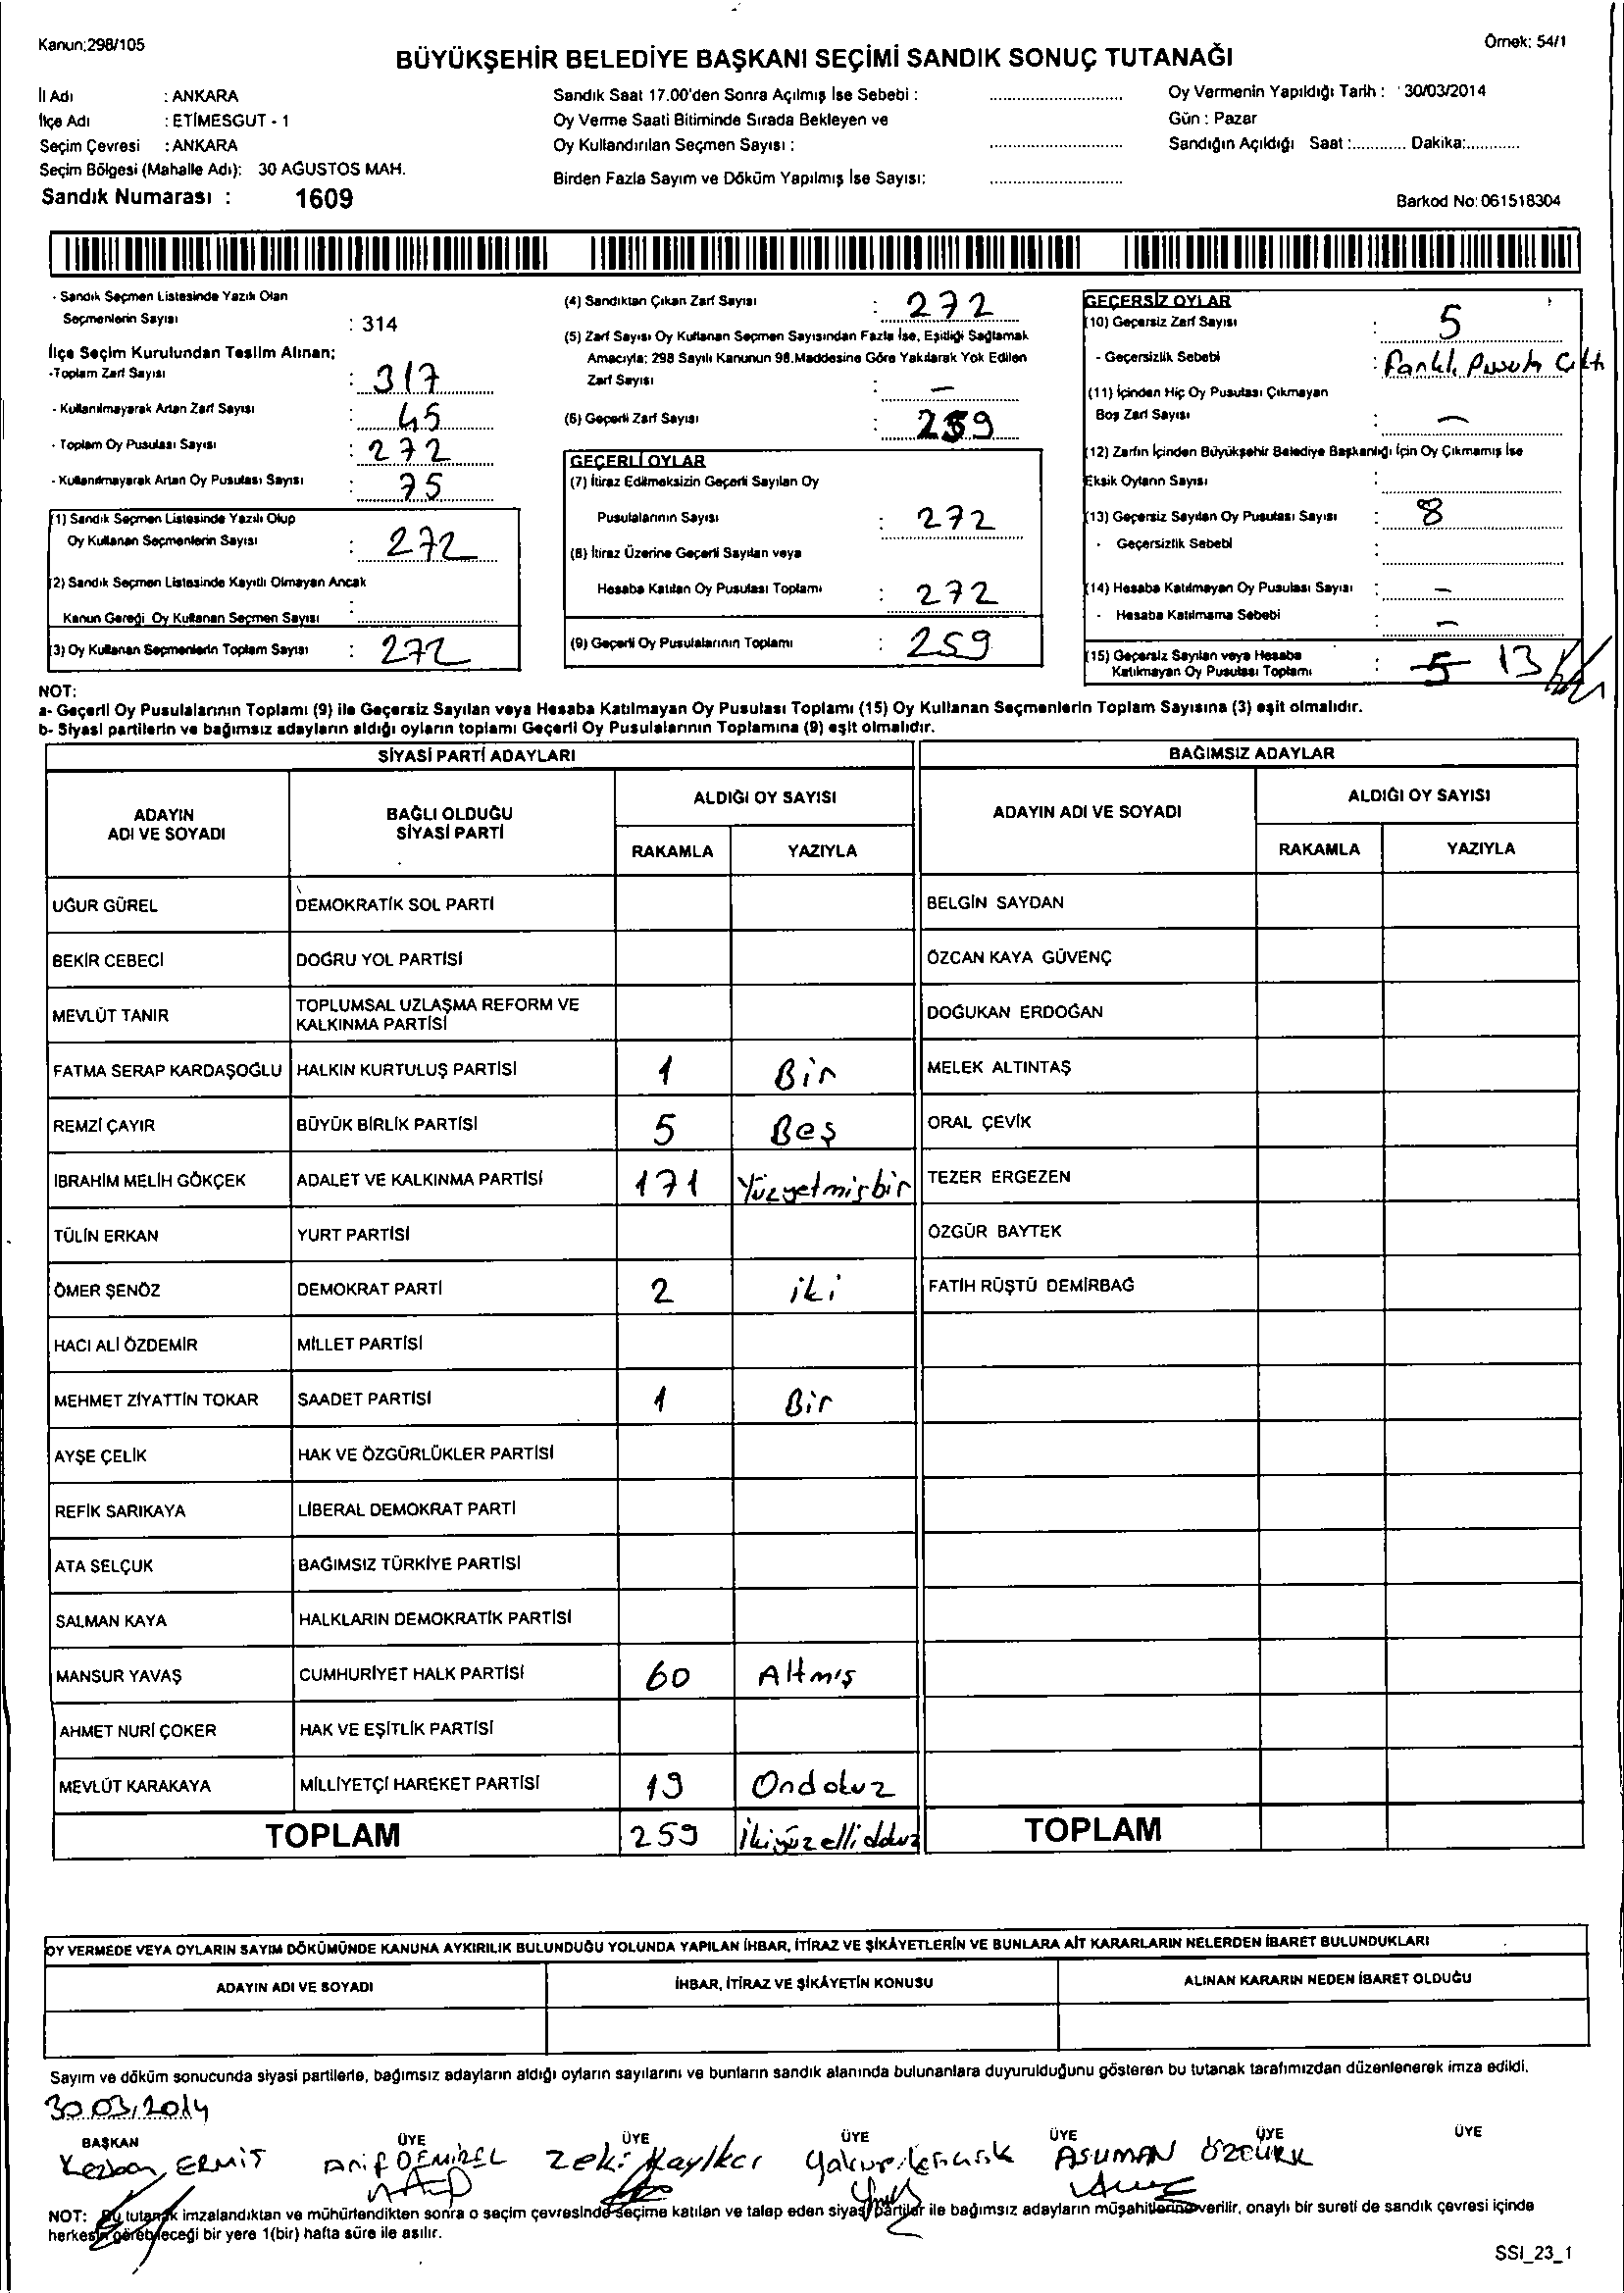 Kanun:298/105
Örnek: 54/1
BÜYÜKŞEHİR BELEDİYE BAŞKANI SEÇİMİ SANDIK SONUÇ TUTANAĞI
İl Adı : ANKARA
İlçe Adı : ETİMESGUT - 1
Seçim Çevresi : ANKARA
Seçim Bölgesi (Mahalle Adı): 30 AĞUSTOS MAH.
Sandık Numarası : 1609
Sandık Saat 17.00'den Sonra Açılmış İse Sebebi :
Oy Verme Saati Bitiminde Sırada Bekleyen ve
Oy Kullandırılan Seçmen Sayısı :
Birden Fazla Sayım ve Döküm Yapılmış İse Sayısı:
Oy Vermenin Yapıldığı Tarih : 30/03/2014
Gün : Pazar
Sandığın Açıldığı Saat :............ Dakika:............
Barkod No: 061518304
- Sandık Seçmen Listesinde Yazılı Olan
Seçmenlerin Sayısı : 314
İlçe Seçim Kurulundan Teslim Alınan;
-Toplam Zarf Sayısı : 317
- Kullanılmayarak Artan Zarf Sayısı : 45
- Toplam Oy Pusulası Sayısı : 272
- Kullanılmayarak Artan Oy Pusulası Sayısı : 75
(1) Sandık Seçmen Listesinde Yazılı Olup
Oy Kullanan Seçmenlerin Sayısı : 272
(2) Sandık Seçmen Listesinde Kayıtlı Olmayan Ancak
Kanun Gereği Oy Kullanan Seçmen Sayısı :
(3) Oy Kullanan Seçmenlerin Toplam Sayısı : 272
(4) Sandıktan Çıkan Zarf Sayısı : 272
(5) Zarf Sayısı Oy Kullanan Seçmen Sayısından Fazla İse, Eşitliği Sağlamak
Amacıyla; 298 Sayılı Kanunun 98.Maddesine Göre Yakılarak Yok Edilen
Zarf Sayısı : -
(6) Geçerli Zarf Sayısı : 259
GEÇERLİ OYLAR
(7) İtiraz Edilmeksizin Geçerli Sayılan Oy
Pusulalarının Sayısı : 272
(8) İtiraz Üzerine Geçerli Sayılan veya
Hesaba Katılan Oy Pusulası Toplamı : 272
(9) Geçerli Oy Pusulalarının Toplamı : 259
GEÇERSİZ OYLAR
(10) Geçersiz Zarf Sayısı : 5
- Geçersizlik Sebebi : Farklı Pusula Çıktı
(11) İçinden Hiç Oy Pusulası Çıkmayan
Boş Zarf Sayısı : -
(12) Zarfın İçinden Büyükşehir Belediye Başkanlığı İçin Oy Çıkmamış İse
Eksik Oyların Sayısı :
(13) Geçersiz Sayılan Oy Pusulası Sayısı : 8
- Geçersizlik Sebebi :
(14) Hesaba Katılmayan Oy Pusulası Sayısı : -
- Hesaba Katılmama Sebebi : -
(15) Geçersiz Sayılan veya Hesaba
Katılmayan Oy Pusulası Toplamı : 5 13
NOT:
a- Geçerli Oy Pusulalarının Toplamı (9) ile Geçersiz Sayılan veya Hesaba Katılmayan Oy Pusulası Toplamı (15) Oy Kullanan Seçmenlerin Toplam Sayısına (3) eşit olmalıdır.
b- Siyasi partilerin ve bağımsız adayların aldığı oyların toplamı Geçerli Oy Pusulalarının Toplamına (9) eşit olmalıdır.
SİYASİ PARTİ ADAYLARI
BAĞIMSIZ ADAYLAR
ADAYIN ADI VE SOYADI
BAĞLI OLDUĞU SİYASİ PARTİ
ALDIĞI OY SAYISI
RAKAMLA YAZIYLA
ADAYIN ADI VE SOYADI
ALDIĞI OY SAYISI
RAKAMLA YAZIYLA
UĞUR GÜREL DEMOKRATİK SOL PARTİ BELGİN SAYDAN
BEKİR CEBECİ DOĞRU YOL PARTİSİ ÖZCAN KAYA GÜVENÇ
MEVLÜT TANIR TOPLUMSAL UZLAŞMA REFORM VE KALKINMA PARTİSİ DOĞUKAN ERDOĞAN
FATMA SERAP KARDAŞOĞLU HALKIN KURTULUŞ PARTİSİ 1 Bir MELEK ALTINTAŞ
REMZİ ÇAYIR BÜYÜK BİRLİK PARTİSİ 5 Beş ORAL ÇEVİK
İBRAHİM MELİH GÖKÇEK ADALET VE KALKINMA PARTİSİ 171 Yüzyetmişbir TEZER ERGEZEN
TÜLİN ERKAN YURT PARTİSİ ÖZGÜR BAYTEK
ÖMER ŞENÖZ DEMOKRAT PARTİ 2 iki FATİH RÜŞTÜ DEMİRBAĞ
HACI ALİ ÖZDEMİR MİLLET PARTİSİ
MEHMET ZİYATTİN TOKAR SAADET PARTİSİ 1 Bir
AYŞE ÇELİK HAK VE ÖZGÜRLÜKLER PARTİSİ
REFİK SARIKAYA LİBERAL DEMOKRAT PARTİ
ATA SELÇUK BAĞIMSIZ TÜRKİYE PARTİSİ
SALMAN KAYA HALKLARIN DEMOKRATİK PARTİSİ
MANSUR YAVAŞ CUMHURİYET HALK PARTİSİ 60 Altmış
AHMET NURİ ÇOKER HAK VE EŞİTLİK PARTİSİ
MEVLÜT KARAKAYA MİLLİYETÇİ HAREKET PARTİSİ 19 Ondokuz
TOPLAM 259 İkiyüzellidokuz TOPLAM
OY VERMEDE VEYA OYLARIN SAYIM DÖKÜMÜNDE KANUNA AYKIRILIK BULUNDUĞU YOLUNDA YAPILAN İHBAR, İTİRAZ VE ŞİKÂYETLERİN VE BUNLARA AİT KARARLARIN NELERDEN İBARET BULUNDUKLARI
ADAYIN ADI VE SOYADI İHBAR, İTİRAZ VE ŞİKÂYETİN KONUSU ALINAN KARARIN NEDEN İBARET OLDUĞU
Sayım ve döküm sonucunda siyasi partilerle, bağımsız adayların aldığı oyların sayılarını ve bunların sandık alanında bulunanlara duyurulduğunu gösteren bu tutanak tarafımızdan düzenlenerek imza edildi.
30.03.2014
BAŞKAN ÜYE ÜYE ÜYE ÜYE ÜYE ÜYE
ERMİŞ Arif DEMİREL Zeki Kaylkcı Yakup ASUMAN ÖZTÜRK
NOT: Bu tutanak imzalandıktan ve mühürlendikten sonra o seçim çevresinde seçime katılan ve talep eden siyasi partiler ile bağımsız adayların müşahitlerine verilir, onaylı bir sureti de sandık çevresi içinde
herkesin görebileceği bir yere 1(bir) hafta süre ile asılır.
SSI_23_1